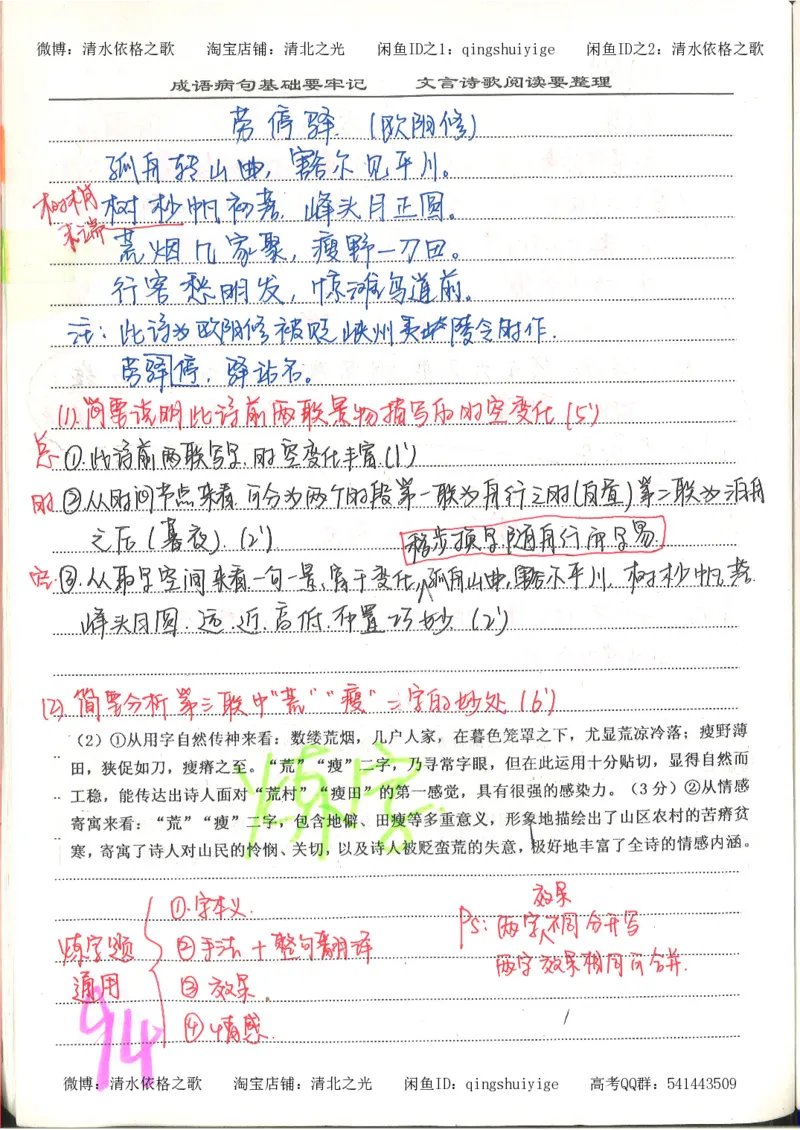 微博：清水依格之歌 淘宝店铺：清北之光 闲鱼ID之1：qingshuiyige 闲鱼ID之2：清水依格之歌
成语病句基础要牢记 文言诗歌阅读要整理
劳停驿.（欧阳修）
孤舟转山曲，豁尔见平川。
树梢末端
树杪帆初落，峰头月正圆。
荒烟几家聚，瘦野一刀田。
行客愁明发，惊滩鸟道前。
注：此诗为欧阳修被贬峡州夷陵令时作.
劳驿停，驿站名。
(1).简要说明此诗前两联景物描写的时空变化（5'）
总 ①.此诗前两联写景，时空变化丰富.(1')
时 ②从时间节点来看，可分为两个时段第一联为舟行之时(白昼)第二联为泊舟
之后（暮夜）.(2')
移步换景随舟行而景易.
空 ③.从取景空间来看.一句一景，富于变化，孤舟山曲，豁尔平川.树杪帆落.
峰头月圆.远.近.高低.布置巧妙.（2'）
(2).简要分析第三联中“荒”“瘦”二字的妙处（6'）
（2）①从用字自然传神来看：数缕荒烟，几户人家，在暮色笼罩之下，尤显荒凉冷落；瘦野薄
田，狭促如刀，瘦瘠之至。“荒”“瘦”二字，乃寻常字眼，但在此运用十分贴切，显得自然而
工稳，能传达出诗人面对“荒村”“瘦田”的第一感觉，具有很强的感染力。（3分）②从情感
寄寓来看：“荒”“瘦”二字，包含地僻、田瘦等多重意义，形象地描绘出了山区农村的苦瘠贫
寒，寄寓了诗人对山民的怜悯、关切，以及诗人被贬蛮荒的失意，极好地丰富了全诗的情感内涵。
炼字
炼字题通用
①.字本义.
②手法＋整句翻译
③效果.
④情感.
效果
Ps：两字不同分开写
两字效果相同可合并.
94
微博：清水依格之歌 淘宝店铺：清北之光 闲鱼ID：qingshuiyige 高考QQ群：541443509